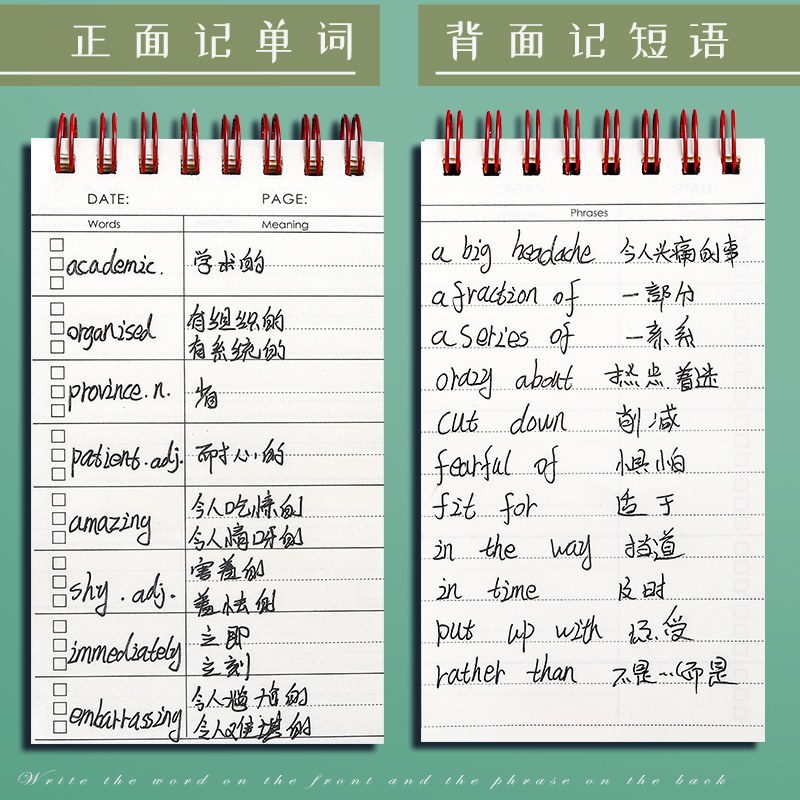 正面记单词
背面记短语
DATE: PAGE:
Words Meaning
academic. 学术的
organised 有组织的
有系统的
province.n. 省
patient.adj. 耐心的
amazing 令人吃惊的
令人惊讶的
shy.adj. 害羞的
羞怯的
immediately 立即
立刻
embarrassing 令人尴尬的
令人难堪的
Phrases
a big headache 令人头痛的事
a fraction of 一部分
a series of 一系
orazy about 热点 着迷
cut down 削减
fearful of 惧怕
fit for 适于
in the way 挡道
in time 及时
put up with 忍受
rather than 不是…而是
Write the word on the front and the phrase on the back